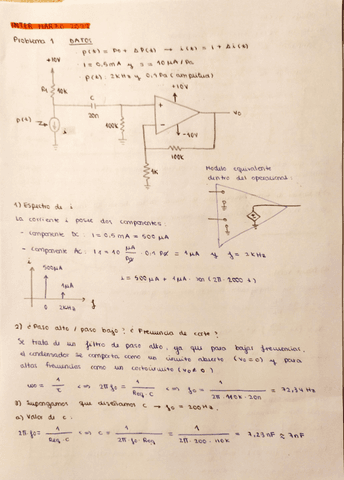 INTER MARZO 2022
Problema 1 DATOS
p(t) = Po + ΔP(t) → i(t) = I + Δi(t)
· I = 0,5 mA y s = 10 μA/Pa
· p(t): 2kHz y 0,1 Pa (amplitud)
+10V
+10V
R1 10k
C
20n
p(t)
i
100k
+
-
-10V
vo
100k
1K
Modelo equivalente
dentro del operacional:
1) Espectro de i
La corriente i posee dos componentes
- componente DC: I = 0,5 mA = 500 μA
- componente AC: I1 = 10 μA/Pa · 0,1 Pa = 1 μA y f = 2KHz
500μA
1μA
0 2KHz f
i = 500μA + 1μA · sin (2π·2000 t)
2) ¿Paso alto / paso bajo? ¿Frecuencia de corte?
Se trata de un filtro de paso alto, ya que para bajas frecuencias,
el condensador se comporta como un circuito abierto (vo = 0) y para
altas frecuencias como un cortocircuito (vo ≠ 0)
ωo = 1/τ ⇔ 2π fo = 1/(Req·C) ⇔ fo = 1/(2π·110K·20n) = 72,34 Hz
3) Supongamos que diseñamos C → fo = 200Hz.
a) Valor de C.
2π·fo = 1/(Req·C) ⇔ C = 1/(2π·fo·Req) = 1/(2π·200·110K) = 7,23 nF ≈ 7nF